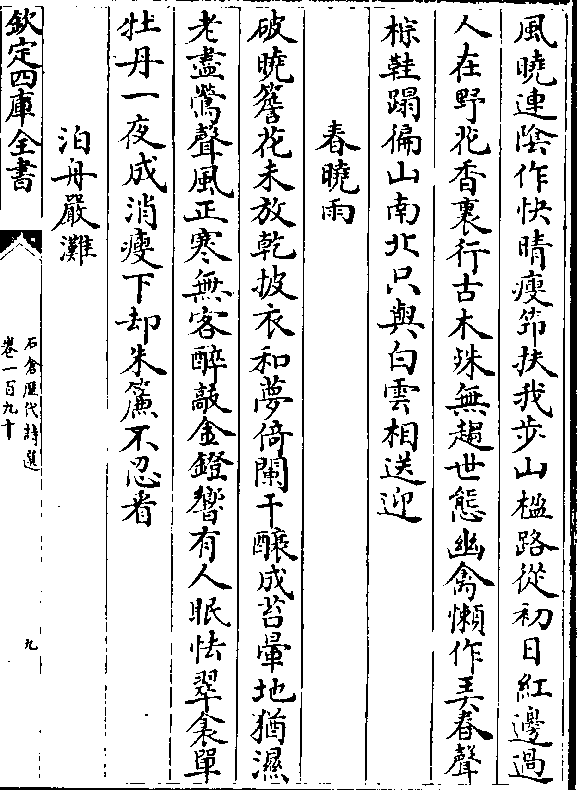 風曉連陰作快晴瘦笻扶我步山楹路從初日紅邊過
人在野花香裏行古木殊無趨世態幽禽懶作美春聲
椶鞋蹋徧山南北只與白雲相送迎
春曉雨
破曉簷花未放乾披衣和夢倚闌干釀成苔暈地猶濕
老盡鶯聲風正寒無客醉敲金鐙響有人眠怯翠衾單
牡丹一夜成消瘦下却朱簾不忍看
泊舟嚴灘
欽定四庫全書
石倉歷代詩選
卷一百九十
九